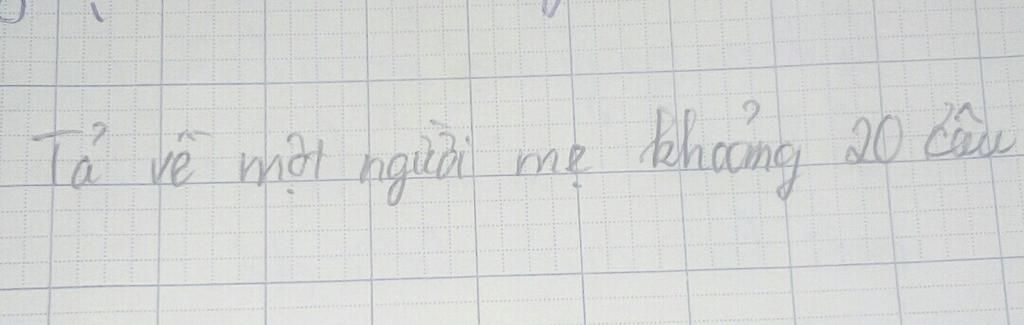 Tả về một người mẹ khoảng 20 câu